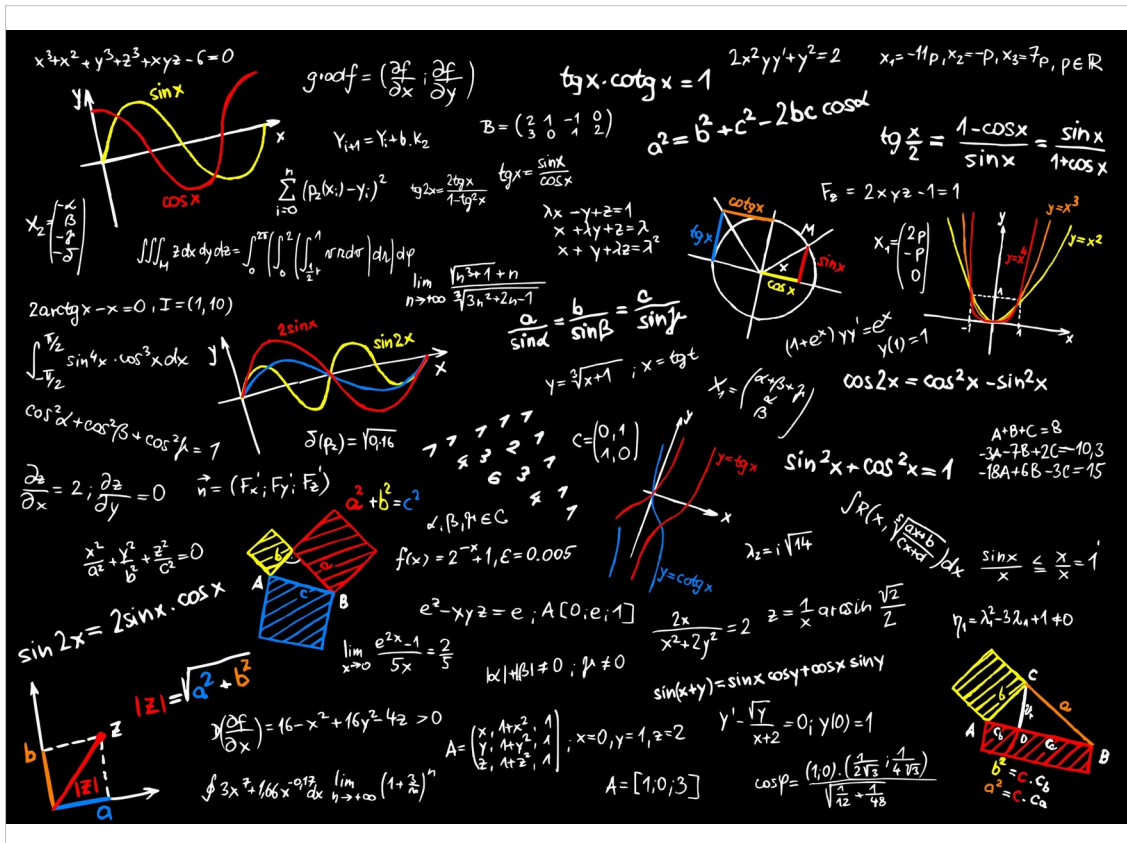 x³+x²+y³+z³+xyz-6=0
grad f = (∂f/∂x ; ∂f/∂y)
tgx·cotgx=1
2x²yy'+y²=2
x₁=-11p, x₂=-p, x₃=7p, p∈R
y
sinx
x
cosx
Yᵢ₊₁=Yᵢ+b.k₂
B=(2 1 -1 0
3 0 1 2)
a²=b²+c²-2bc cosα
tg x/2 = (1-cosx)/sinx = sinx/(1+cosx)
∑ i=0 n (p₂(xᵢ)-yᵢ)²
tg2x=2tgx/(1-tg²x)
tgx=sinx/cosx
F_z=2xyz-1=1
X₂=(-α
β
-γ
-δ)
λx-y+z=1
x+λy+z=λ
x+y+λz=λ²
cotgx
tgx
M
sinx
x
cosx
X₁=(2p
-p
0)
y
y=x³
y=x²
y=x⁴
1
-1
1
x
∭_M z dx dy dz=
lim n→+∞
2arctgx-x=0, I=(1,10)
a/sinα=b/sinβ=c/sinγ
(1+eˣ)yy'=eˣ
y(1)=1
∫ -π/2 π/2 sin⁴x·cos³x dx
y
2sinx
sin2x
x
y=∛(x+1) ; x=tgt
cos2x=cos²x-sin²x
cos²α+cos²β+cos²γ=1
δ(p₂)=√0,16
C=(0,1
1,0)
y
y=tgx
x
y=cotgx
sin²x+cos²x=1
A+B+C=8
-3A-7B+2C=-10,3
-18A+6B-3C=15
∂z/∂x=2 ; ∂z/∂y=0
n⃗=(Fx';Fy';Fz')
a²+b²=c²
b
a
c
A
B
α,β,γ∈C
∫R(x, ⁵√((ax+b)/(cx+d)))dx
x²/a²+y²/b²+z²/c²=0
f(x)=2⁻ˣ+1, ε=0.005
λ₂=i√14
sinx/x ≤ x/x=1
sin2x=2sinx·cosx
eᶻ-xyz=e ; A[0;e;1]
2x/(x²+2y²)=2
z=1/x arcsin √2/2
η₁=λ₁²-3λ₁+1≠0
lim x→0 (e²ˣ-1)/5x=2/5
|α|+|β|≠0 ; γ≠0
sin(x+y)=sinx cosy+cosx siny
|z|=√(a²+b²)
b
z
|z|
a
D(∂f/∂x)=16-x²+16y²-4z>0
A=(x, 1+x², 1
y, 1+y², 1
z, 1+z², 1) ; x=0,y=1,z=2
y'-√y/(x+2)=0; y(0)=1
C
b
a
A
D
B
b²=c.c_b
a²=c.c_a
∮3x⁷+1,66x⁻⁰·¹⁷dx
lim n→+∞ (1+3/n)ⁿ
A=[1;0;3]
cosρ=(1;0).(1/2√3 ; 1/4√3)/√(1/12+1/48)